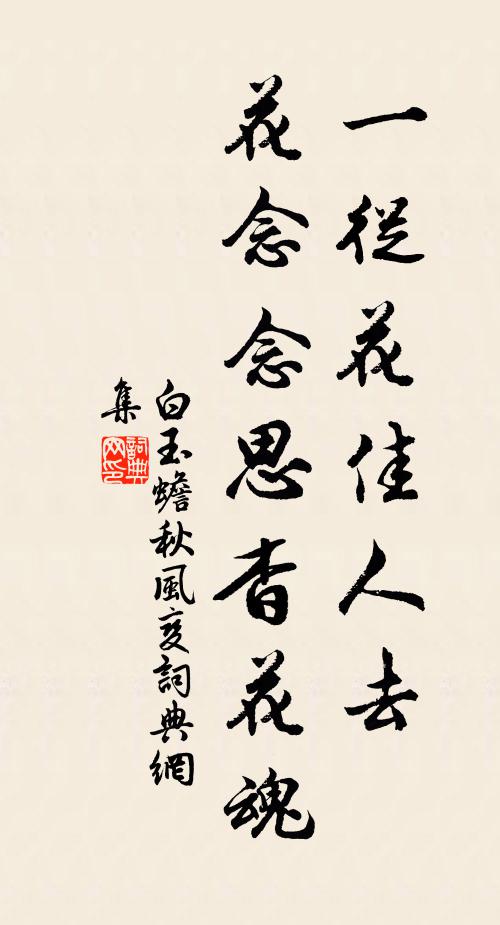 一從花佳人去
花念念思杳花魂
白玉蟾秋風變詞典網
集
詞典
网印